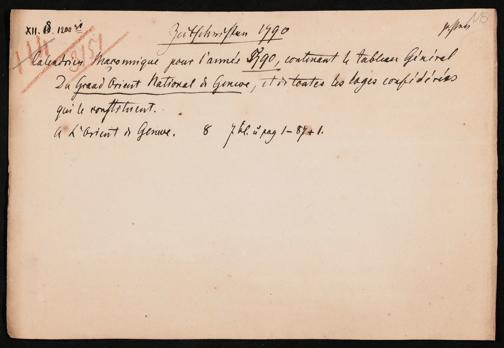 Zeitschriften 1790
Calendrier Maçonnique pour l'année 1790, contenant le tableau Général
Du Grand Orient National de Geneve, et de toutes les loges confédérées
qui le constituent.
A L'Orient de Geneve. 8 7 bl. u. pag 1-87+1.